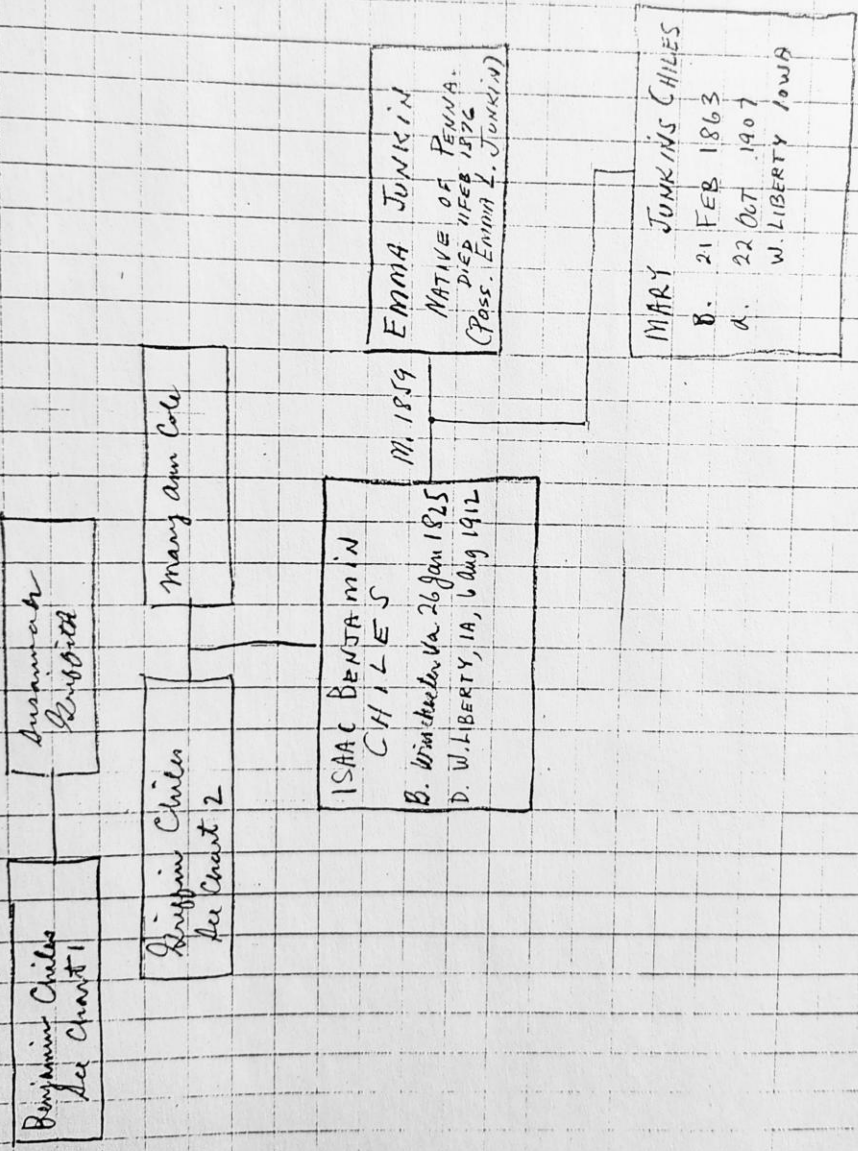 Benjamin Chiles
See Chart 1
Susannah
Griffith
Griffin Chiles
See Chart 2
Mary Ann Cole
ISAAC BENJAMIN
CHILES
B. Winchester Va 26 Jan 1825
D. W. LIBERTY, IA, 6 Aug 1912
M. 1859
EMMA JUNKIN
NATIVE OF PENNA.
DIED 11 FEB 1876
(POSS. EMMA L. JUNKIN)
MARY JUNKINS CHILES
B. 21 FEB 1863
d. 22 OCT 1907
W. LIBERTY IOWA